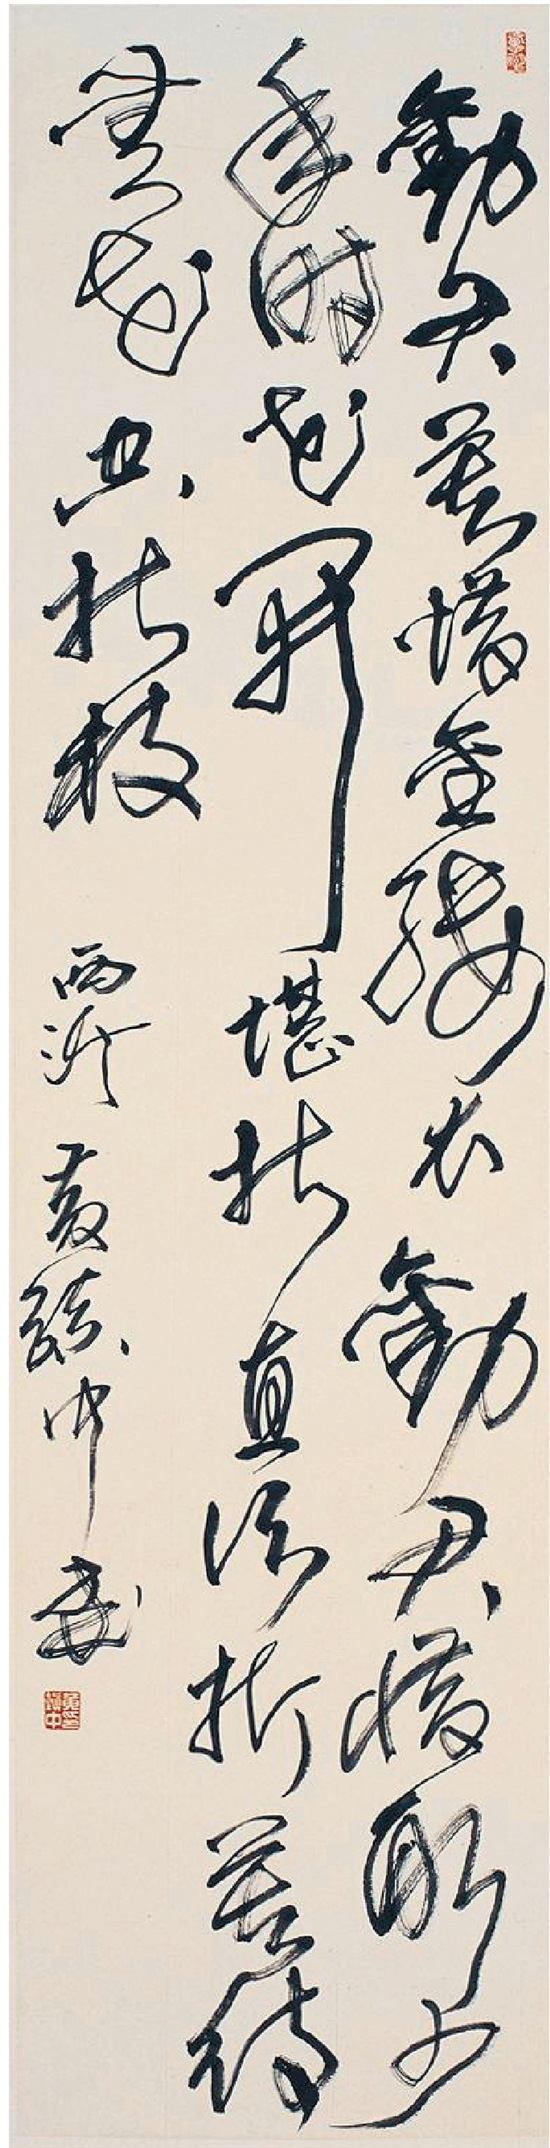 勸君莫惜金縷衣勸君惜取少
年時花開堪折直須折莫待
無花空折枝 黃鎮中